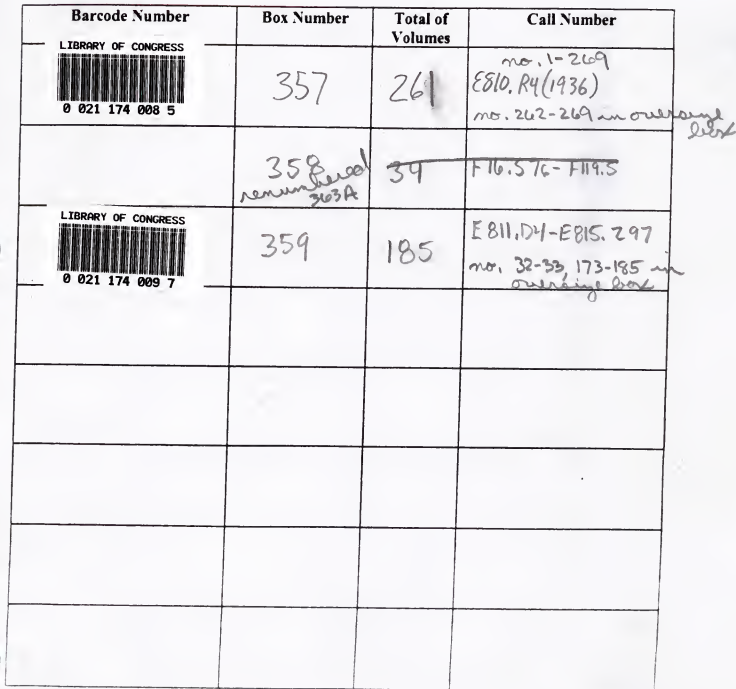 Barcode Number Box Number Total of Volumes Call Number
LIBRARY OF CONGRESS
0 021 174 008 5
357
261
no. 1-269
E810.R4(1936)
no. 262-269 in oversize box
358
renumbered
363A
39
F16.5 76-F119.5
LIBRARY OF CONGRESS
0 021 174 009 7
359
185
E811.D4-E815.Z97
no. 32-33, 173-185 in
oversize box